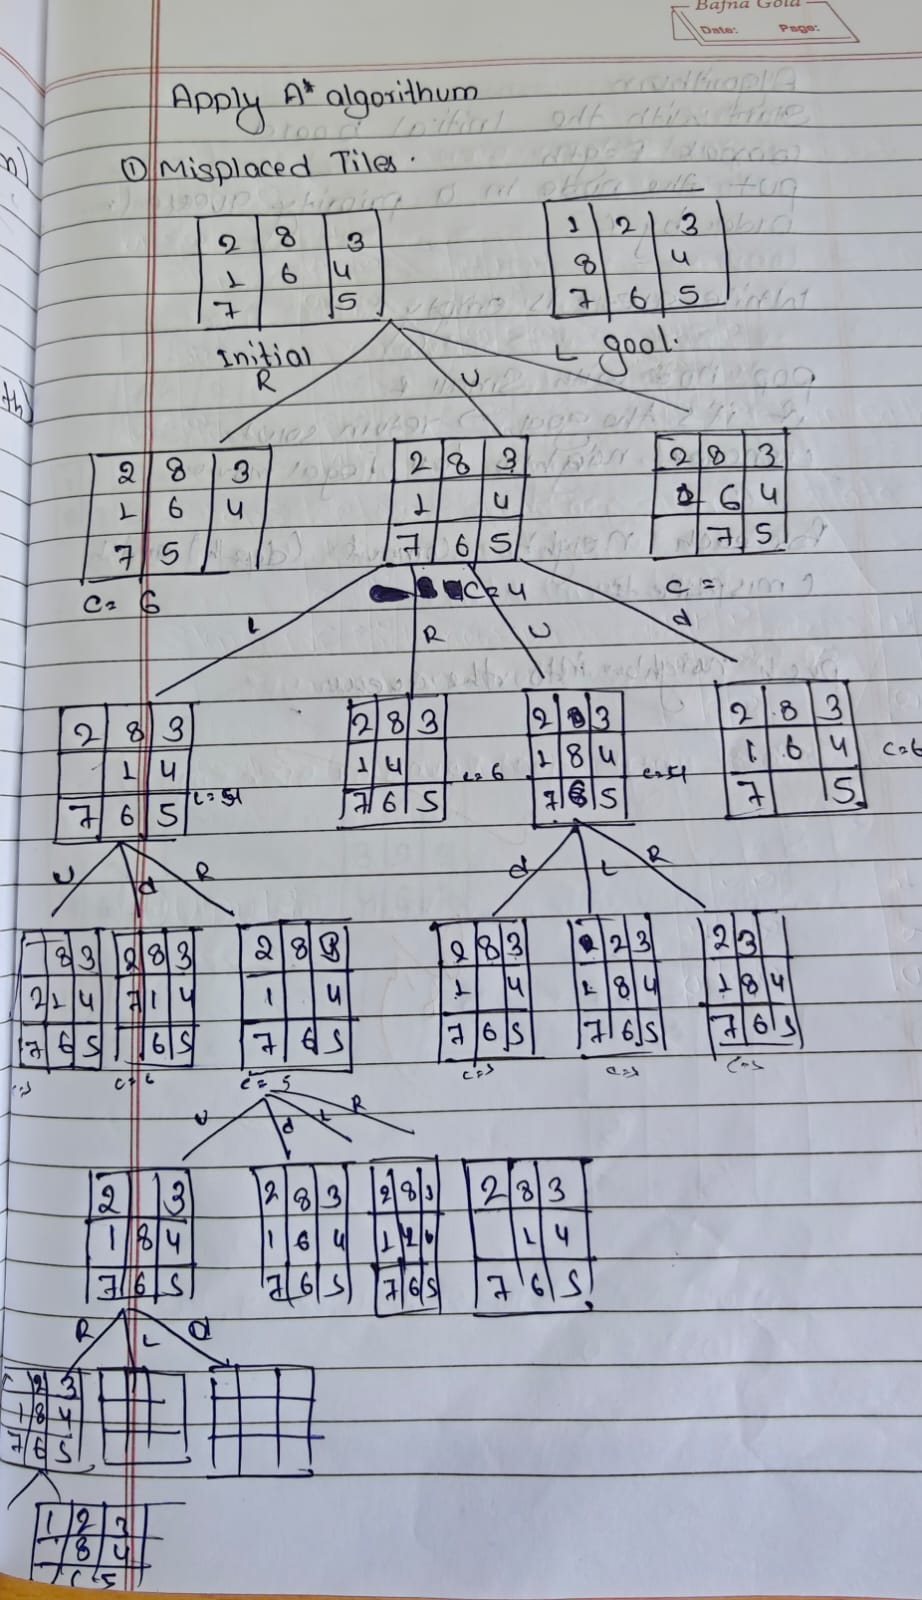 Bafna Gold
Date: Page:
Apply A* algorithum
① Misplaced Tiles.
2 8 3
1 6 4
7 5
Initial
1 2 3
8 4
7 6 5
goal.
R U L
2 8 3
1 6 4
7 5
C= 6
2 8 3
1 4
7 6 5
C=4
2 8 3
1 6 4
7 5
C=
L R U d
2 8 3
1 4
7 6 5
2 8 3
1 4
7 6 5
C=6
2 3
1 8 4
7 6 5
2 8 3
1 6 4
7 5
C=6
U d R
d L R
8 3
2 1 4
7 6 5
2 8 3
7 1 4
6 5
C=6
2 8 3
1 4
7 6 5
C=5
2 8 3
1 4
7 6 5
C=5
2 3
1 8 4
7 6 5
C=5
2 3
1 8 4
7 6 5
C=5
U d L R
2 3
1 8 4
7 6 5
2 8 3
1 6 4
7 6 5
2 8 3
1
7 6 5
2 8 3
1 4
7 6 5
R L d
2 3
1 8 4
7 6 5
1 2 3
8 4
5